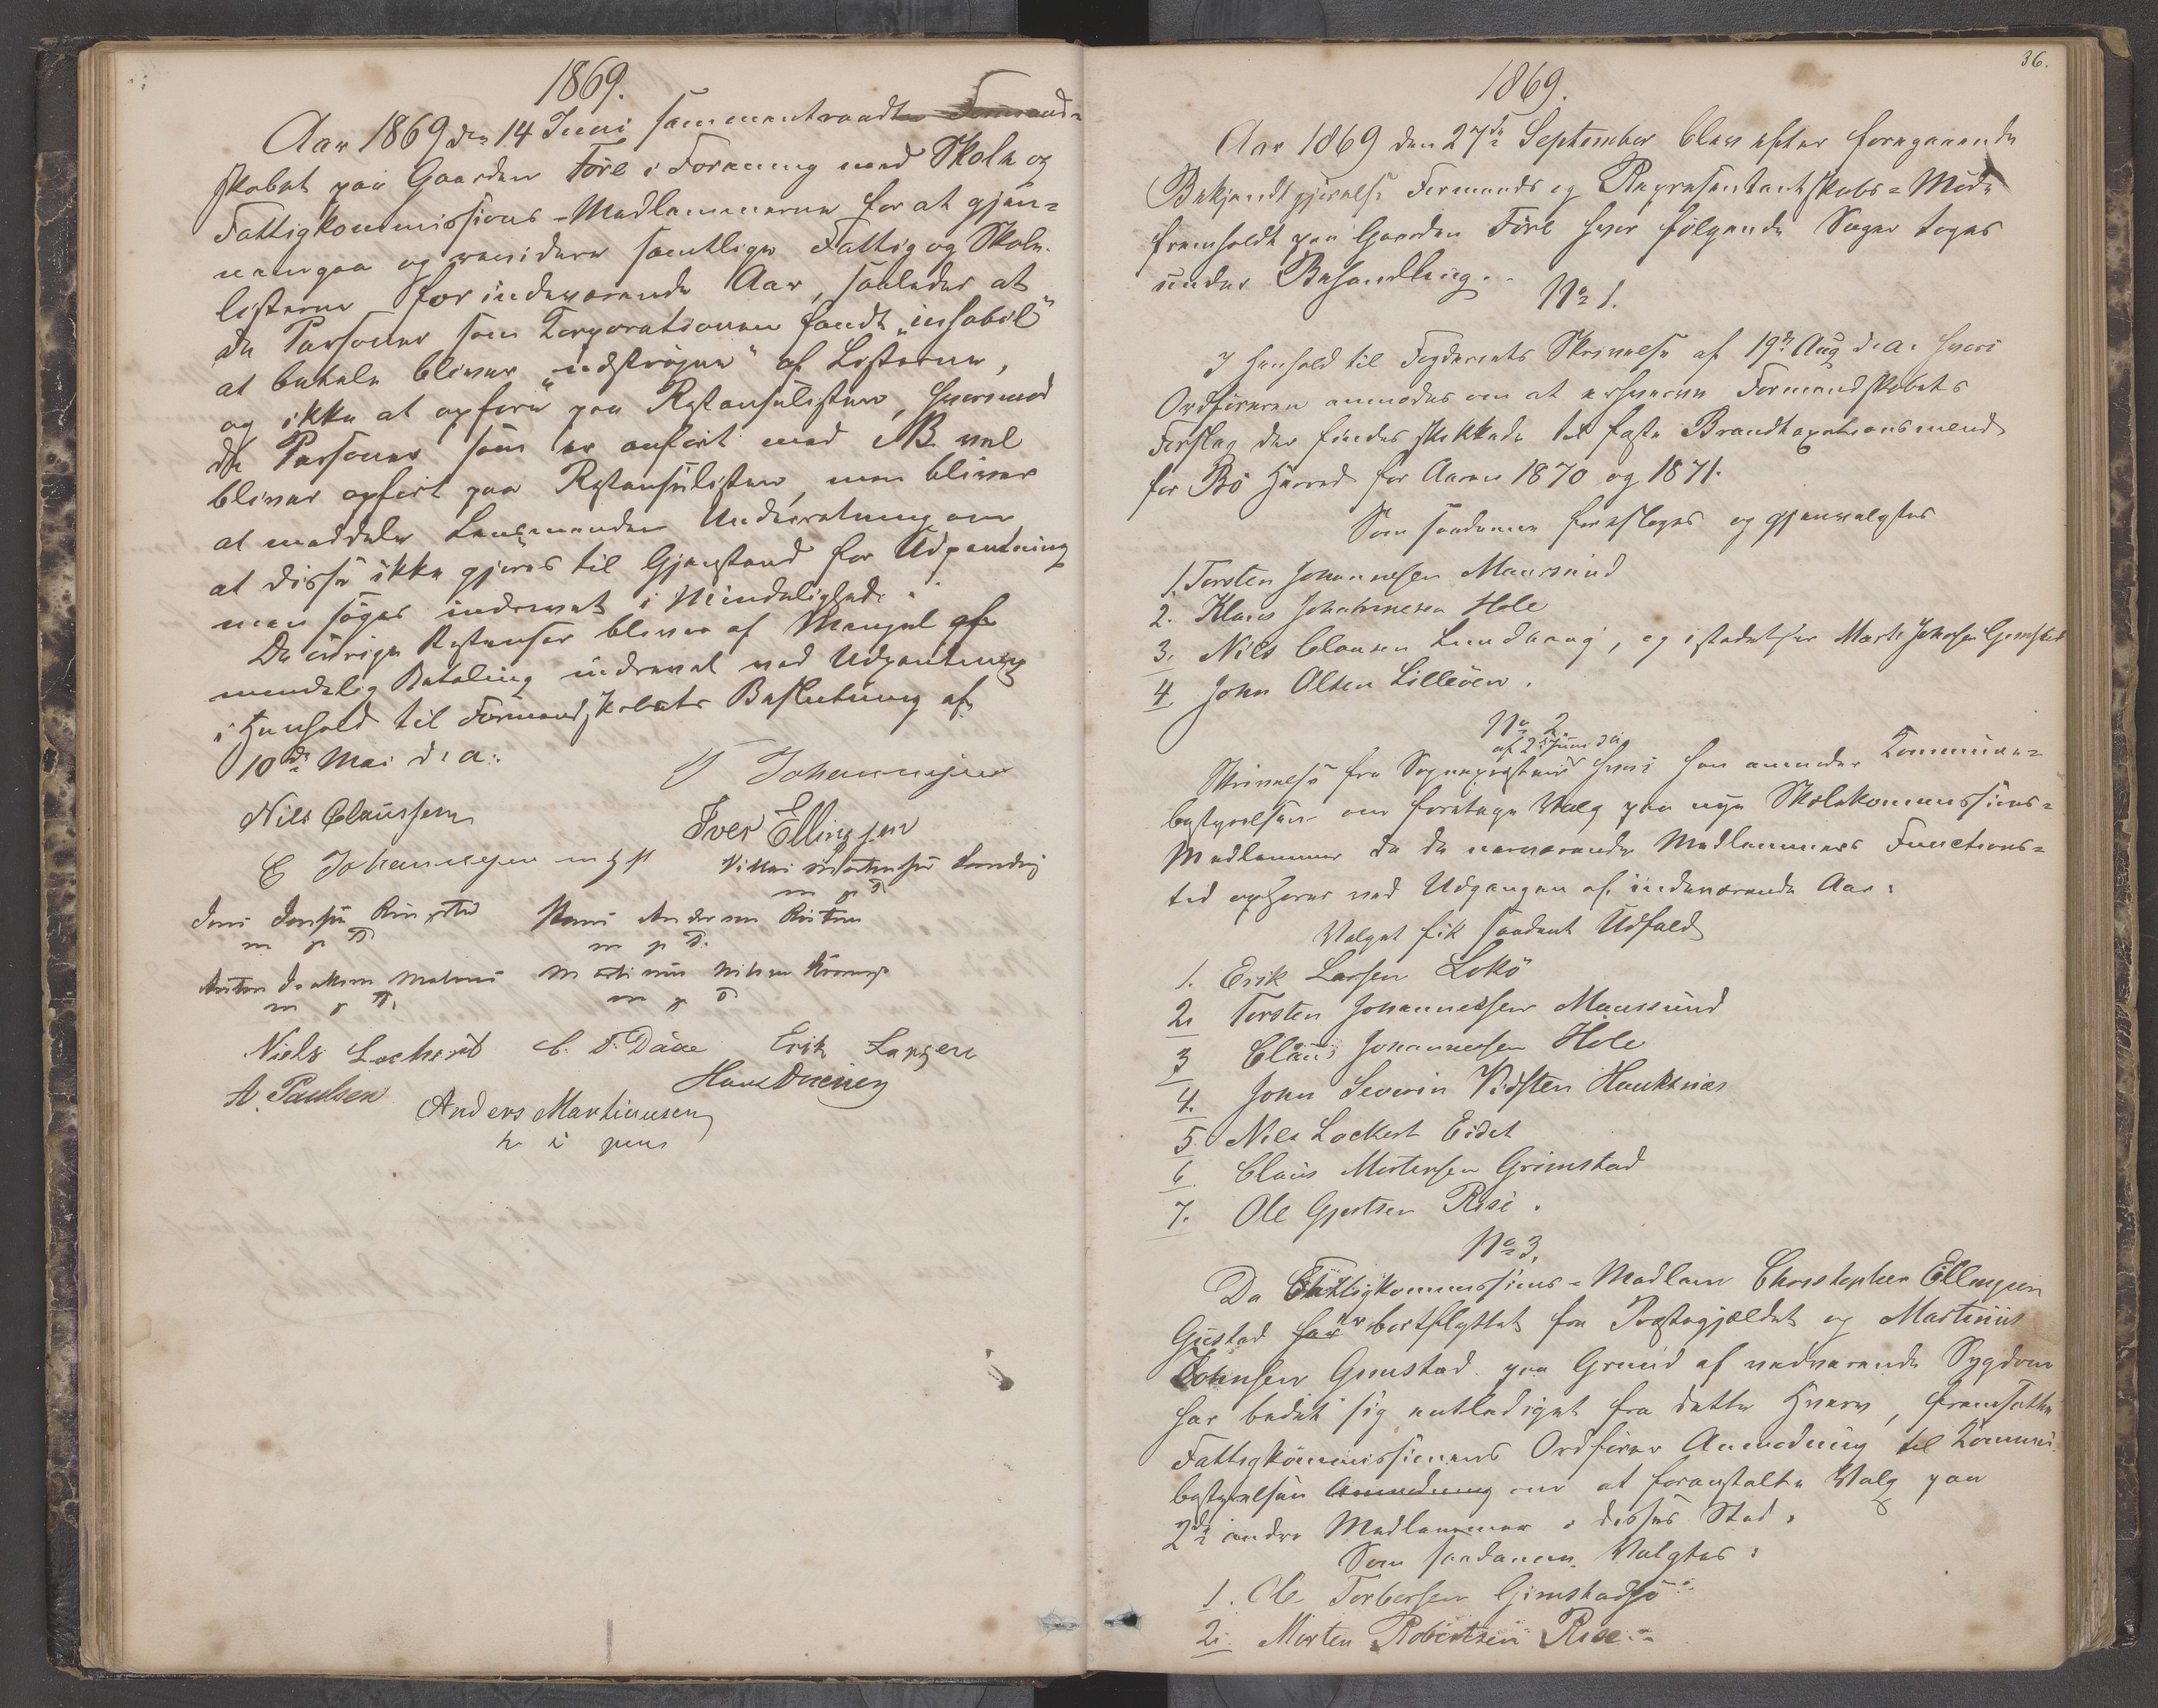 1869.
Aar 1869 den 14 Juni sammentraadte Formand-
skabet paa Gaarden Före i Forening med Skole og
Fattigkommissions-Medlemmerne for at gjen-
nemgaa og revidere samtlige Fattig og Skole-
listerne for indeværende Aar, saaledes at
de Personer som Corporationen fandt "inhabil"
at betale bliver "udströgne" af Listerne,
og ikke at opføre paa Restanselisten, hvorimod
de Personer som er anført med NB. vel
bliver opført paa Restanselisten, men bliver
at meddele Lensmanden Underretning om
at disse ikke gjøres til Gjenstand for Udpantning
men söges inddrevet i Mindelighed.
De øvrige Restanser bliver af Mangel af
mindelig Betaling inddrevet ved Udpantning
i Henhold til Formandskabets Beslutning af
10de Mai d. a.
T Johannesen
Nils Claussen
Iver Ellingsen
E Johannesen
m p P
Jens Jensen Ringstad
m p P
Hans Andersen
m p P.
Anton
m p P.
Martinus Nilsen
m p P
Niels Lockert
C. F. Daae
Erik Larsen
A. Paulsen
Hans
Anders Martinussen
h i pen
36.
1869.
Aar 1869 den 27de September blev efter foregaaende
Bekjendtgjørelse Formands og Repræsentantskabs-Møde
fremholdt paa Gaarden Före hvor følgende Sager toges
under Behandling.
No 1.
I Henhold til Fogderiets Skrivelse af 19de Aug d. a. hvori
Ordføreren anmodes om at erhverve Formandskabets
Forslag der findes skikkede til faste Brandtaxationsmend
for Bö Herred for Aarene 1870 og 1871.
Som saadanne foresloges og gjenvalgtes
1. Torsten Johannesen Maursund
2. Klaus Johannesen Hole
3. Nils Clausen Lundvaag, og istedetfor Mart. Johnsen Grimstad
4 John Olsen Lilleöen.
No 2.
af 2 Juni d a
Skrivelse fra Sognepresten hvori han anmoder Kommune-
bestyrelsen om foretage Valg paa nye Skolekommissions-
Medlemmer da de nærværende Medlemmers Functions-
tid ophører ved Udgangen af indeværende Aar.
Valget fik saadant Udfald
1. Erik Larsen Lokö
2 Torsten Johannessen Maursund
3 Claus Johannesen Hole
4. John Severin Vidsten Hauknæs
5. Nils Lockert Eidet
6. Claus Mortensen Grimstad
7. Ole Gjertsen Risé.
No 3.
Da Fattigkommissions-Medlem Christopher Ellingsen
Gustad har er bortflyttet fra Prestegjeldet og Martinus
Johnsen Grimstad paa Grund af vedvarende Sygdom
har bedet sig entlediget fra dette Hverv, fremsatte
Fattigkommissionens Ordfører Anmodning til Kommune-
bestyrelsen Anmodning om at foranstalte Valg paa
2de andre Medlemmer i disses Sted.
Som saadanne Valgtes:
1. Ole Torbersen Grimstadsö
2. Morten Robertsen Rise.